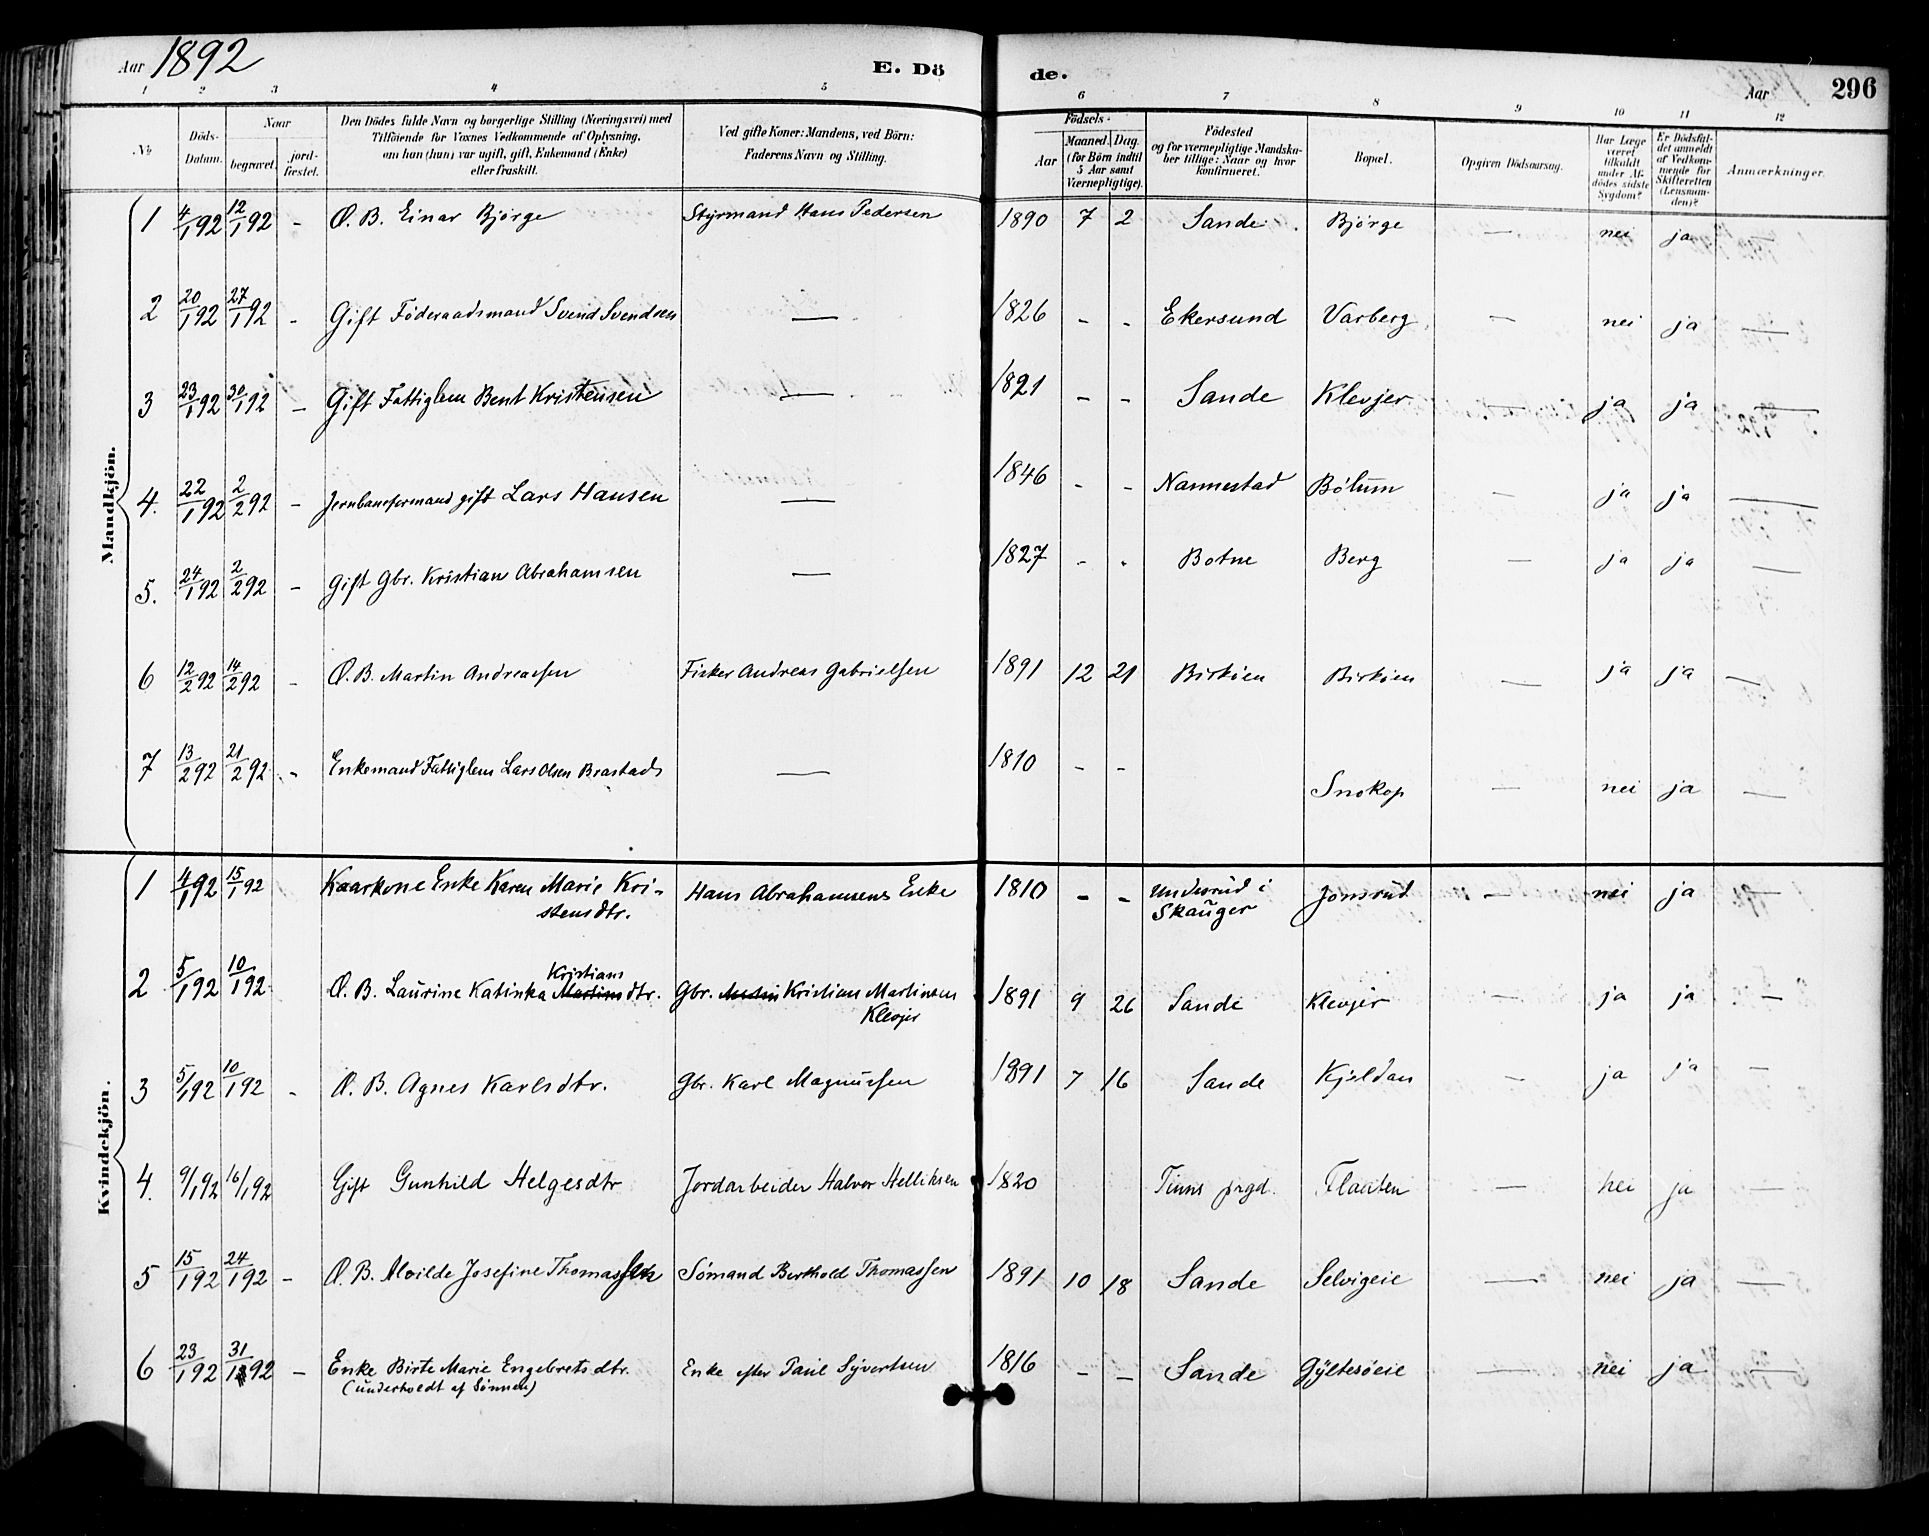 Aar 1892 E. Dö de. Aar 296
1 2 3 4 5 6 7 8 9 10 11 12
No Döds-Datum. Naar begravet. jord-fæstet. Den Dödes fulde Navn og borgerlige Stilling (Næringsvei) med Tilföiende for Voxnes Vedkommende af Oplysning, om han (hun) var ugift, gift, Enkemand (Enke) eller fraskilt. Ved gifte Koner: Mandens, ved Börn: Faderens Navn og Stilling. Födsels- Aar Maaned. Dag. (for Börn indtil 5 Aar samt Værnepligtige). Födested og for værnepligtige Mandskaber tillige: Naar og hvor konfirmeret. Bopæl. Opgiven Dödsaarsag. Har Læge været tilkaldt under Afdödes sidste Sygdom? Er Dödsfaldet anmeldt af Vedkommende for Skifteretten (Lensmanden)? Anmærkninger.
Mandkjön.
1 4/1 92 12/1 92 - Æ. B. Einar Bjørge Styrmand Hans Pedersen 1890 7 2 Sande Bjørge — nei ja —
2 20/1 92 27/1 92 - Gift Føderaadsmand Svend Svendsen — 1826 - - Ekersund Varberg — nei ja —
3 23/1 92 30/1 92 - Gift Fattiglem Bent Kristensen — 1821 - - Sande Klevjer — ja ja —
4. 22/1 92 2/2 92 - Jernbaneformand gift Lars Hansen — 1846 - - Nannestad Bølum — ja ja —
5. 24/1 92 2/2 92 - Gift Gbr. Kristian Abrahamsen — 1827 - - Botne Berg — ja ja —
6 12/2 92 14/2 92 - Æ. B. Martin Andreassen Fisker Andreas Gabrielsen 1891 12 21 Birkøen Birkøen — ja ja —
7 13/2 92 21/2 92 - Enkemand Fattiglem Lars Olsen Brastads — 1810 - - Snokop — nei ja —
Kvindekjön.
1 4/1 92 15/1 92 Kaarkone Enke Karen Marie Kri-
stensdtr. Hans Abrahamsens Enke 1810 - - Undersrud i
Skauger Jonsrud — nei ja —
2 5/1 92 10/1 92 Æ. B. Laurine Katinka Martinsdtr. Kristians Gbr. Martin Kristian Martinsen
Klevjer 1891 9 26 Sande Klevjer — ja ja —
3 5/1 92 10/1 92 - Æ. B. Agnes Karlsdtr. Gbr. Karl Magnussen 1891 7 16 Sande Kjeldan — ja ja —
4. 9/1 92 16/1 92 Gift Gunhild Helgesdtr Jordarbeider Halvor Helliksen 1820 Tinns prgd. Flaaten — nei ja —
5 15/1 92 24/1 92 - Æ. B. Alvilde Josefine Thomassen Sømand Berthold Thomassen 1891 10 18 Sande Selvigeie — nei ja —
6 23/1 92 31/1 92 - Enke Birte Marie Engebretsdtr.
(underholdt af Sønnen) Enke efter Paul Syvertsen 1816 - - Sande Gyltesøeie — nei ja —